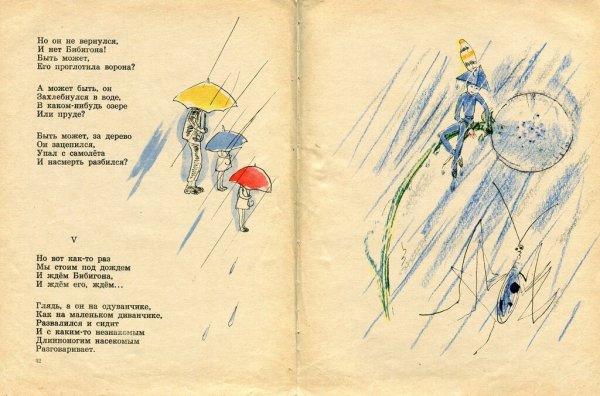 Но он не вернулся,
И нет Бибигона!
Быть может,
Его проглотила ворона?
А может быть, он
Захлебнулся в воде,
В каком-нибудь озере
Или пруде?
Быть может, за дерево
Он зацепился,
Упал с самолёта
И насмерть разбился?
V
Но вот как-то раз
Мы стоим под дождем
И ждём Бибигона,
И ждём его, ждём...
Глядь, а он на одуванчике,
Как на маленьком диванчике,
Развалился и сидит
И с каким-то незнакомым
Длинноногим насекомым
Разговаривает.
42